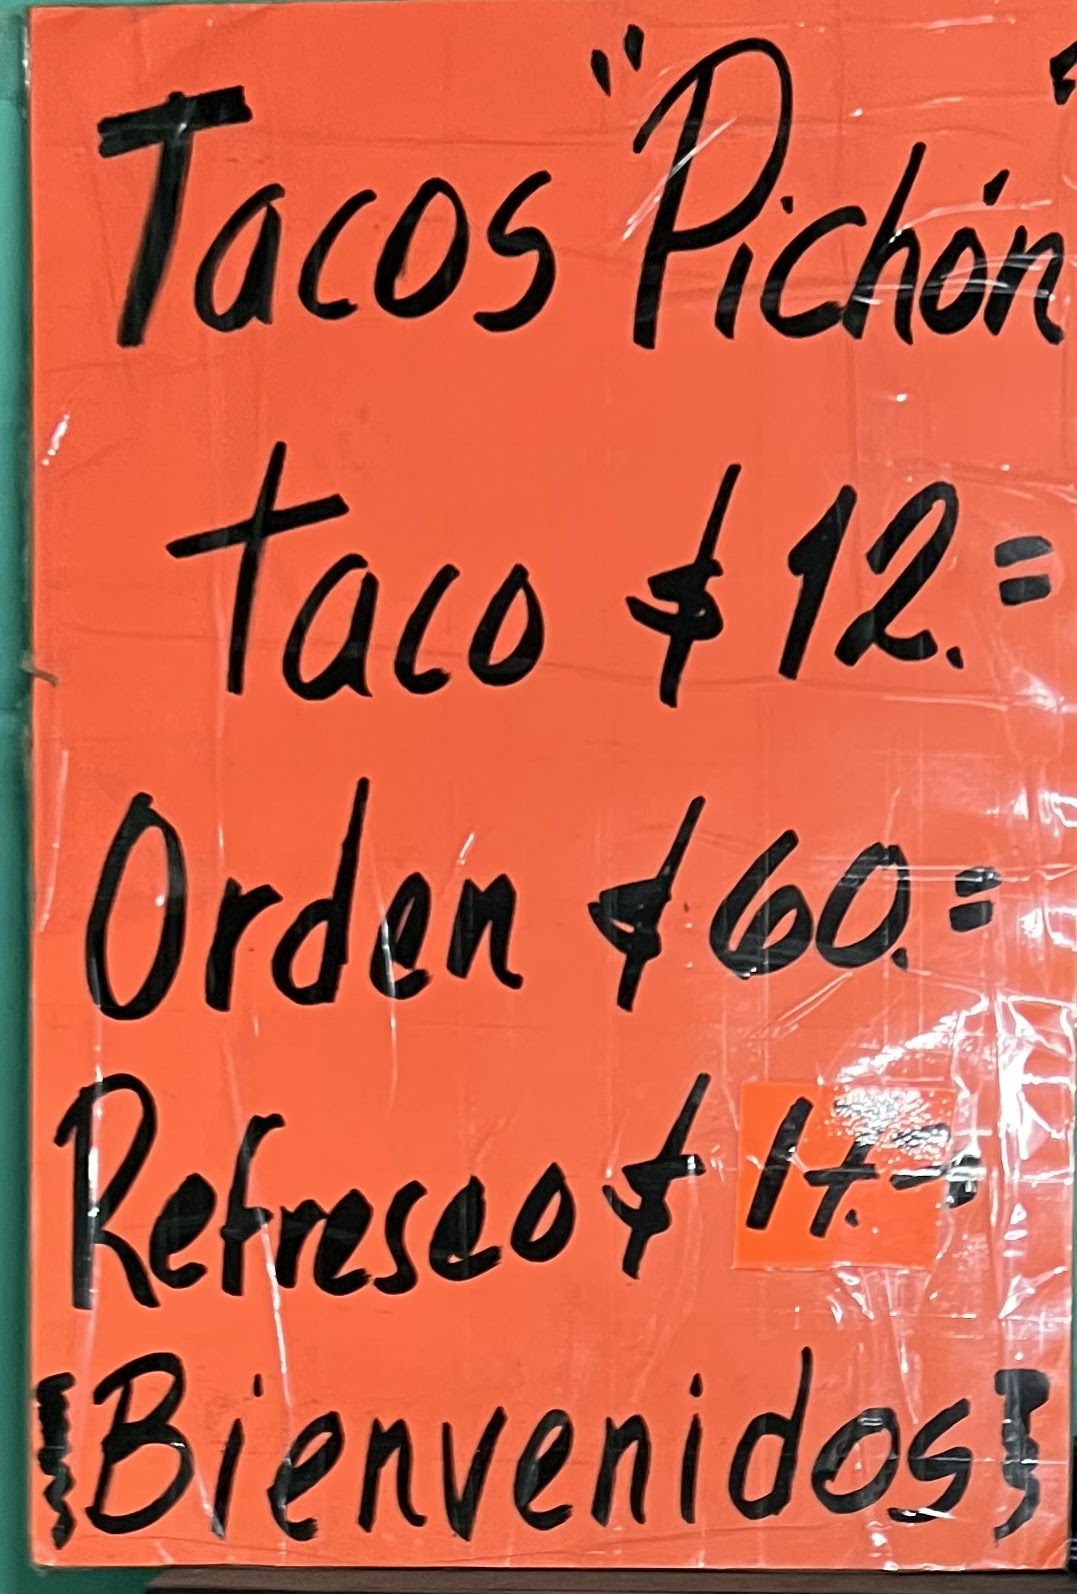 Tacos "Pichón"
Taco $12.=
Orden $60.=
Refresco $17.=
¡Bienvenidos!